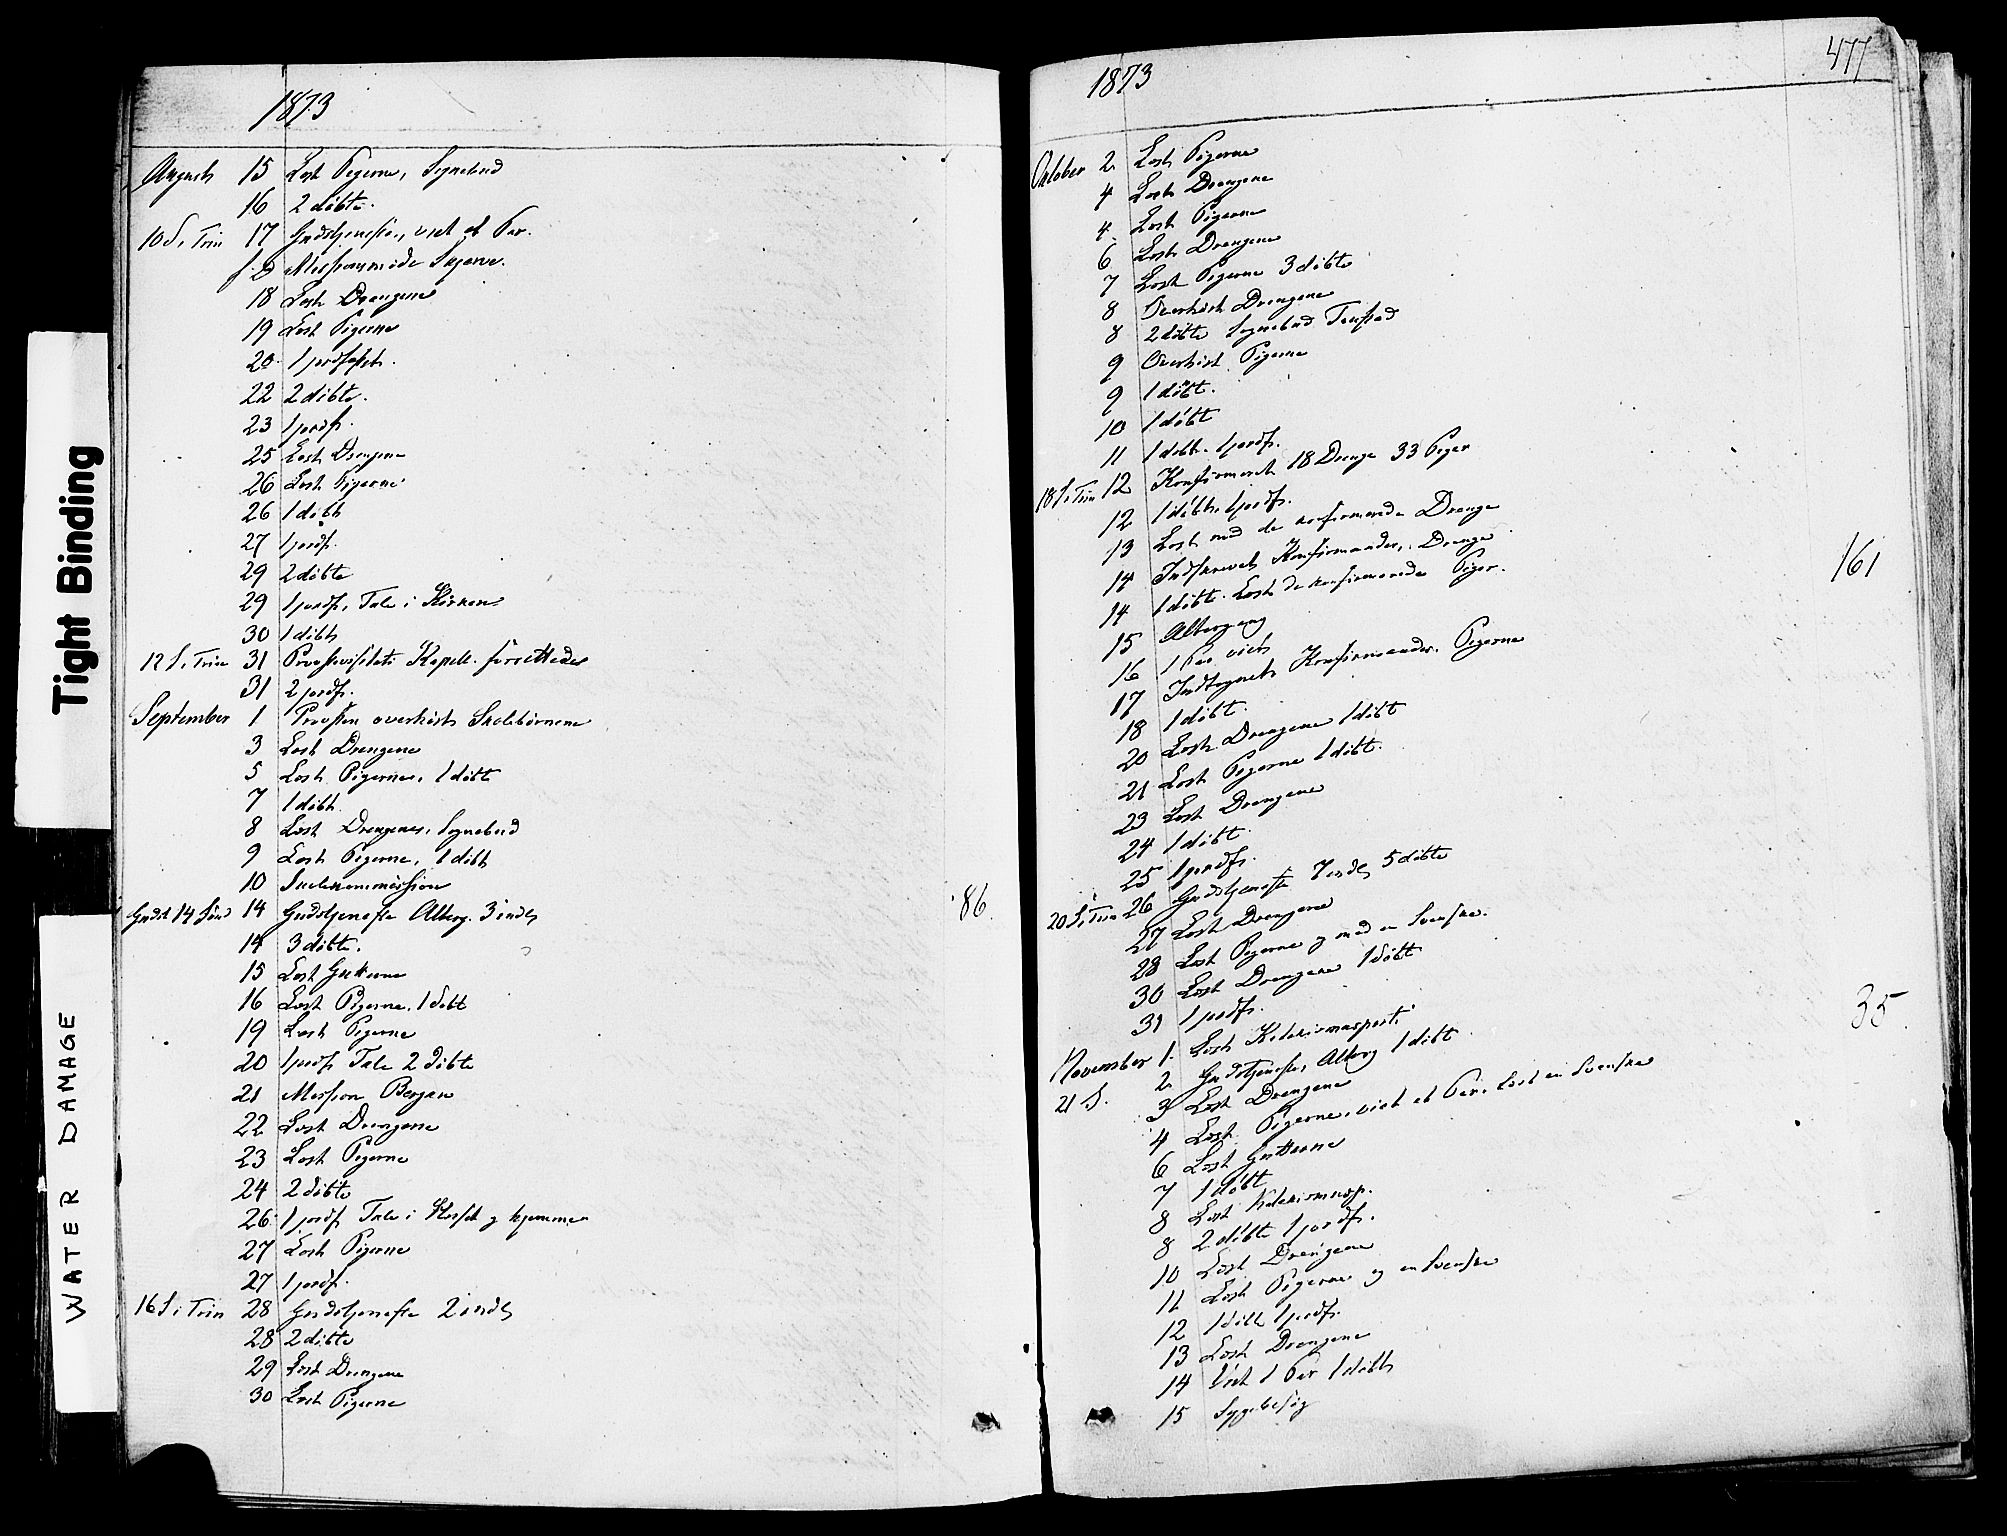 Tight Binding
WATER DAMAGE
1873
August 15 Læst Pigerne, Sognebud
16 2 døbte.
10 S. i Trin 17 Gudstjeneste, viet et Par.
s. D Missionsmøde
18 Læst Drengene
19 Læst Pigerne
20 1 jordfæst.
22 2 døbte.
23 1 jordf.
25 Læst Drengene
26 Læst Pigerne
26 1 døbt
27 1 jordf.
29 2 døbte
29 1 jordf. Tale i Kirken
30 1 døbt
12 S. i Trin 31 Provstevisitats Kapell. forrettede
31 2 jordf.
September 1 Provsten overhørte Skolebørnene
3 Læst Drengene
5 Læst Pigerne, 1 døbt
7 1 døbt
8 Læst Drengene, Sognebud
9 Læst Pigerne, 1 døbt
10 Skolekommission
14 Gudstjeneste Alterg. 3 indl. 86.
14 3 døbte.
15 Læst Gutterne
16 Læst Pigerne, 1 døbt
19 Læst Pigerne
20 1 jordf. Tale 2 døbte
21 Mission Bergan
22 Læst Drengene
23 Læst Pigerne
24 2 døbte
26 1 jordf. Tale i og hjemme
27 Læst Pigerne
27 1 jordf.
16 S. i Trin 28 Gudstjeneste 2 indl.
28 2 døbte
29 Læst Drengene
30 Læst Pigerne
1873 477
October 2 Læst Pigerne
4 Læst Drengene
4 Læst Pigerne
6 Læst Drengene
7 Læst Pigerne 3 døbte
8 Overhørt Drengene
8 2 døbte Sognebud
9 Overhørt Pigerne
9 1 døbt.
10 1 døbt
11 1 døbt. 1 jordf.
18 S. i Trin 12 Konfirmeret 18 Drenge 33 Piger
12 1 døbt. 1 jordf.
13 Læst med de konfirmerede Drenge
14 Indskrevet Konfirmander, Drenge
14 1 døbt. Læst de konfirmerede Piger.
15 Altergang 161
16 1 Par viet
17 Indtegnet Konfirmander. Pigerne
18 1 døbt.
20 Læst Drengene 1 døbt
21 Læst Pigerne 1 døbt.
23 Læst Drengene
24 1 døbt.
25 1 jordf.
20 S. i Trin 26 Gudstjeneste 7 indl. 5 døbte
27 Læst Drengene
28 Læst Pigerne og med en Svenske.
30 Læst Drengene 1 døbt
31 1 jordf.
November 1. Læst
21 S. 2 Gudstjeneste, Alterg 1 døbt 35.
3 Læst Drengene
4 Læst Pigerne, viet et Par. Læst en Svenske
6 Læst Gutterne
7 1 døbt
8 Læst
8 2 døbte 1 jordf.
10 Læst Drengene
11 Læst Pigerne og en Svenske
12 1 døbt 1 jordf.
13 Læst Drengene
14 Viet 1 Par 1 døbt
15 Sygebesøg